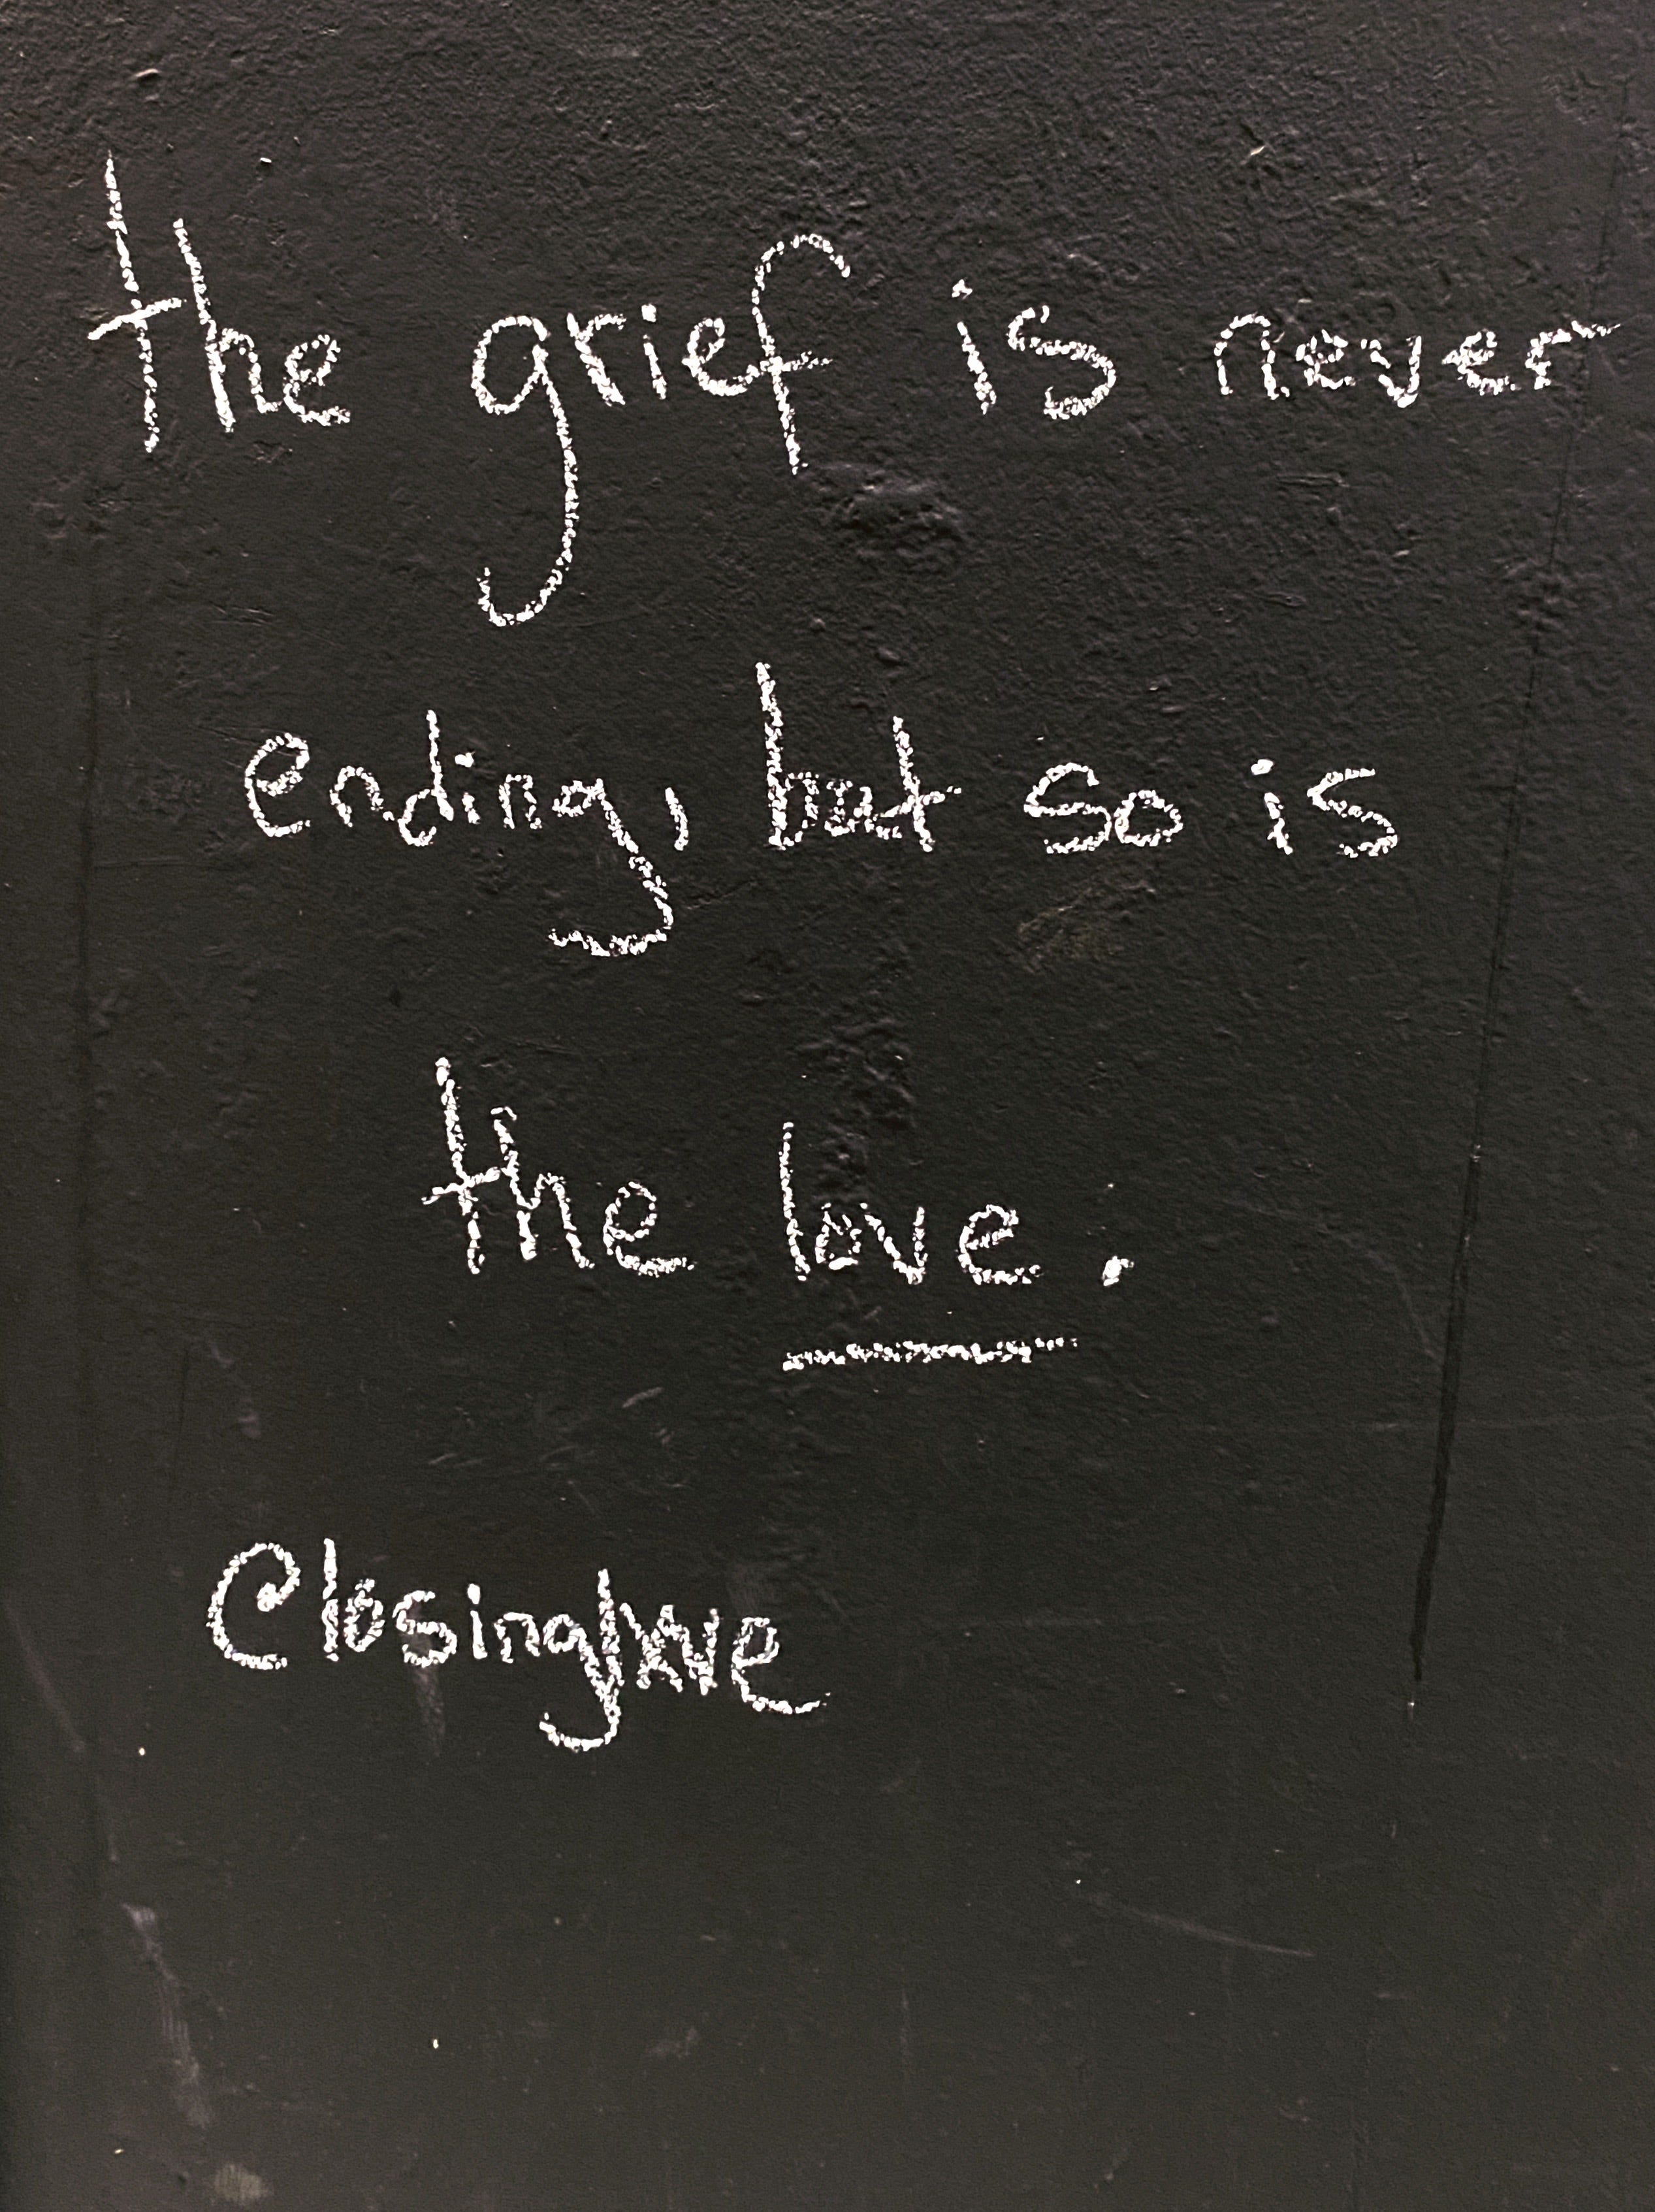 the grief is never
ending, but so is
the love.